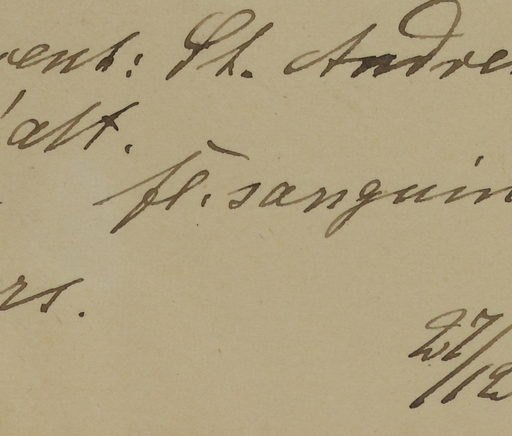 vent: St. Andre
'alt.
fl. sanguin
rs.
27/12